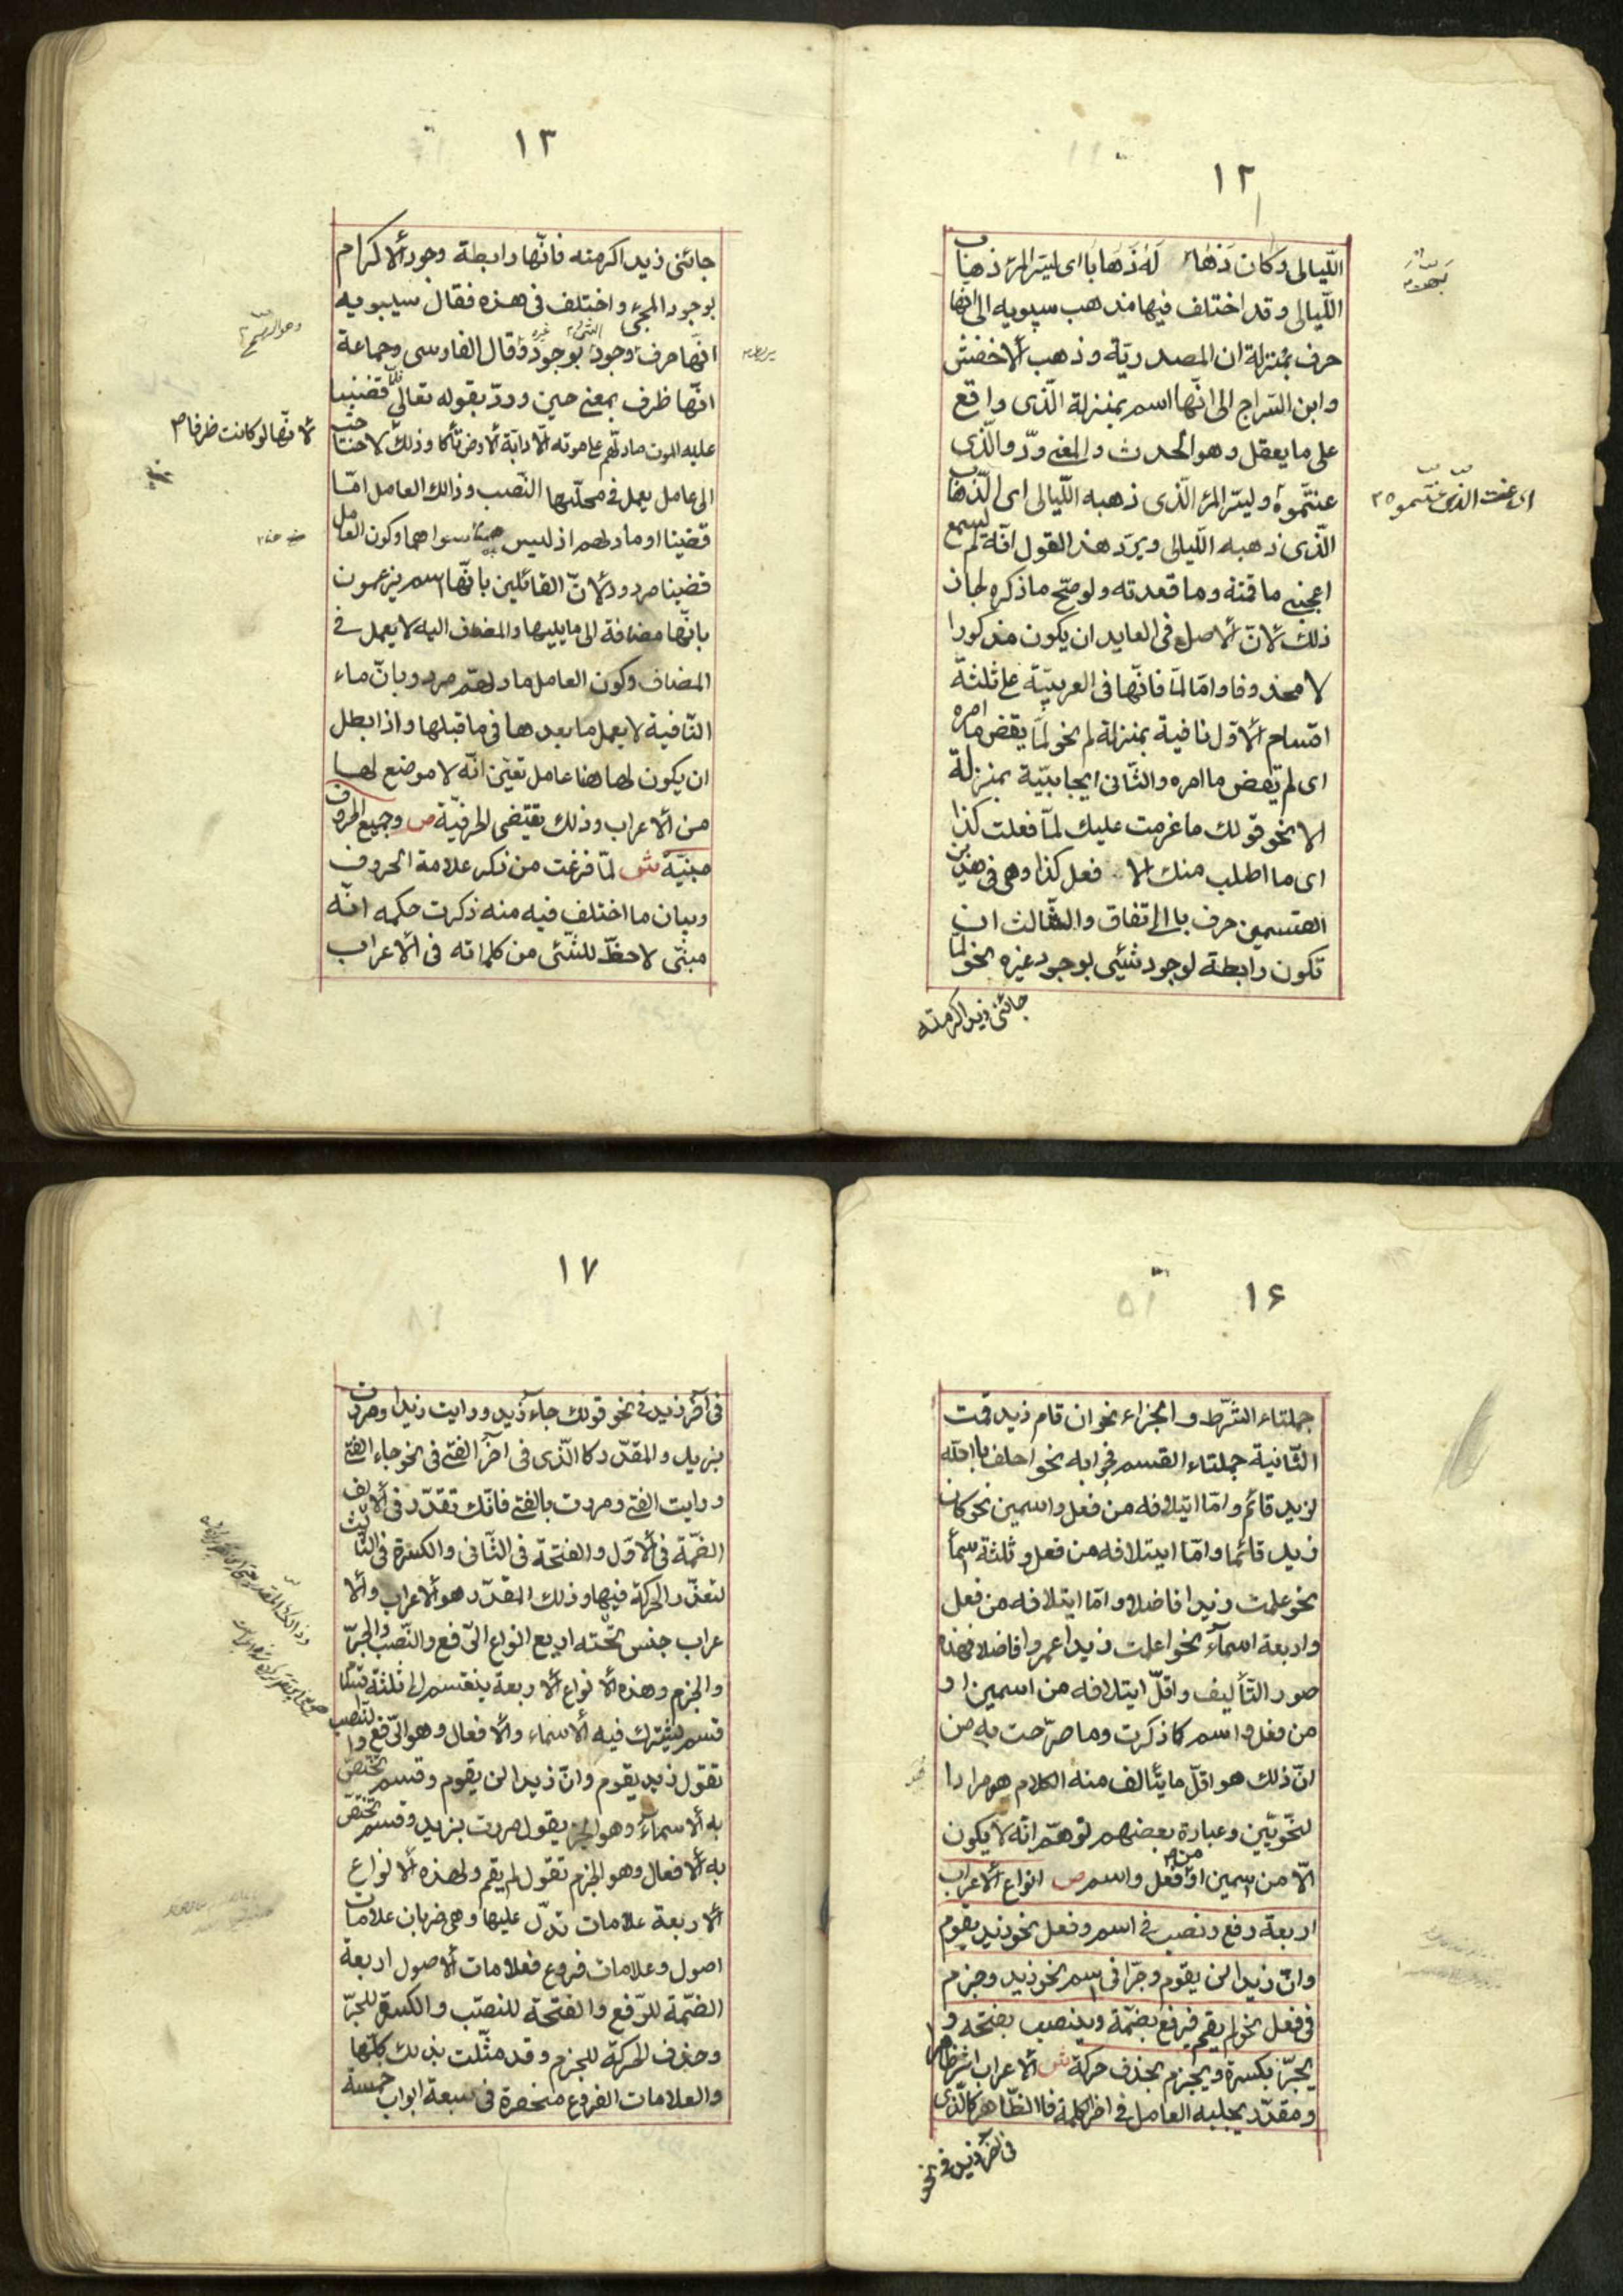 ١٢
الليالى وكان ذهابهن له ذهابا اى ليتر المرء ذهاب
الليالى وقد اختلف فيها فذهب سيبويه الى انها
حرف بمنزلة ان المصدريّة وذهب الاخفش
وابن السراج الى انّها اسم بمنزلة الّذى واقع
على ما يعقل وهو الحدث والمعنى ودّوا الّذى
عنتّموه وليترّ المرء الّذى ذهبه الليالى اى الذهاب
الّذى ذهبه الليالى ويردّ هذا القول انّه لم يسمع
اعجبنى ما قمته وما قعدته ولو صحّ ما ذكره لجاز
ذلك لانّ الاصل فى العايد ان يكون مذكورا
لا محذوفا وامّا لمّا فانّها فى العربيّة على ثلثة
اقسام الاوّل نافية بمنزلة لم نحو لمّا يقض ما امره
اى لم يقض ما امره والثّانى ايجابيّة بمنزلة
الا نحو قولك ما عزمت عليك لمّا فعلت كذا
اى ما اطلب منك الا فعل كذا وهى فى هذين
القسمين حرف بالاتفاق والثّالث ان
تكون رابطة لوجود شئى بوجود غيره نحو لما
جائنى زيد اكرمته
اى عنت الذى عنتّموه
١٣
جائنى زيد اكرمته فانّها رابطة وجود الاكرام
بوجود المجئ واختلف فى هذه فقال سيبويه
انّها حرف وجود بوجود وقال الفارسى وجماعة
انّها ظرف بمعنى حين وردّ بقوله تعالى فلمّا قضينا
عليه الموت ما دلّهم على موته الّا دابّة الارض تأكل وذلك لاحتاجت
الى عامل يعمل فى محلّها النّصب وذالك العامل امّا
قضينا او ما دلهم اذ ليس سواهما وكون العامل
قضينا مردود لانّ القائلين بانّها اسم يزعمون
بانّها مضافة الى ما يليها والمضاف اليه لا يعمل فى
المضاف وكون العامل ما دلهم مردود بانّ ماء
النّافية لا يعمل ما بعدها فى ما قبلها واذا بطل
ان يكون لها هنا عامل تعيّن انّه لا موضع لها
من الاعراب وذلك يقتضى الحرفيّة ص وجميع الحروف
مبنيّة ش لمّا فرغت من ذكر علامة الحروف
وبيان ما اختلف فيه منه ذكرت حكمه انّه
مبنّى لا حظّ للشئى من كلماته فى الاعراب
لانّها لو كانت ظرفا
١۶
جملتاء الشرّط والجزاء نحو ان قام زيد قمت
الثّانية جملتاء القسم فجوابه نحو احلف باالله
لزيد قائم وامّا ايتلافه من فعل واسمين نحو كان
زيد قائما وامّا ايتلافه من فعل وثلثة اسمآء
نحو علمت زيدا فاضلا وامّا ايتلافه من فعل
واربعة اسمآء نحو اعلمت زيدا عمروا فاضلا فهذه
صور التّأليف واقلّ ايتلافه من اسمين او
من فعل واسم كما ذكرت وما صرّحت به من
انّ ذلك هو اقلّ ما يتألف منه الكلام هو مراد ا
لنحّويّين وعبارة بعضهم توهّم انّه لا يكون
الّا من اسمين او من فعل واسم ص انواع الاعراب
اربعة رفع ونصب فى اسم وفعل نحو زيد يقوم
وانّ زيدا لن يقوم وجرّ فى اسم نحو زيد وجزم
فى فعل نحو لم يقم فيرفع بضمّة وينصب بفتحه و
يجرّ بكسرة ويجزم بحذف حركة ش الاعراب اثر ظاهر
ومقدّر يجلبه العامل فى اخر الكلمة فاالظّاهر كالّذى
فى آخر زيد فى نحو
١٧
فى آخر زيد فى نحو قولك جآء زيد ورايت زيدا ومررت
بزيد والمقدّر كالّذى فى اخر الفتى فى نحو جاء الفتى
ورايت الفتى ومررت بالفتى فانّك تقدّر فى الالف
الضّمة فى الاوّل والفتحة فى الثّانى والكسرة فى الثّالث
لتعذّر الحركة فيها وذلك المقدّر هو الاعراب والا
عراب جنس تحته اربع انواع الرّفع والنّصب والجرّ
والجزم وهذه الانواع الاربعة ينقسم الى ثلثة اقسام
قسم يشترك فيه الاسماء والافعال وهو الرّفع والنّصب
تقول زيد يقوم وانّ زيدا لن يقوم وقسم يختصّ
به الاسمآء وهو الجرّ يقول مررت بزيد وقسم يختصّ
به الافعال وهو الجزم تقول لم يقم ولهذه الانواع
الاربعة علامات تدلّ عليها وهى ضربان علامات
اصول وعلامات فروع فعلامات الاصول اربعة
الضّمّة للرّفع والفتحة للنصب والكسرة للجرّ
وحذف الحركة للجزم وقد مثّلت بذلك كلّها
والعلامات الفروع منحصرة فى سبعة ابواب خمسة